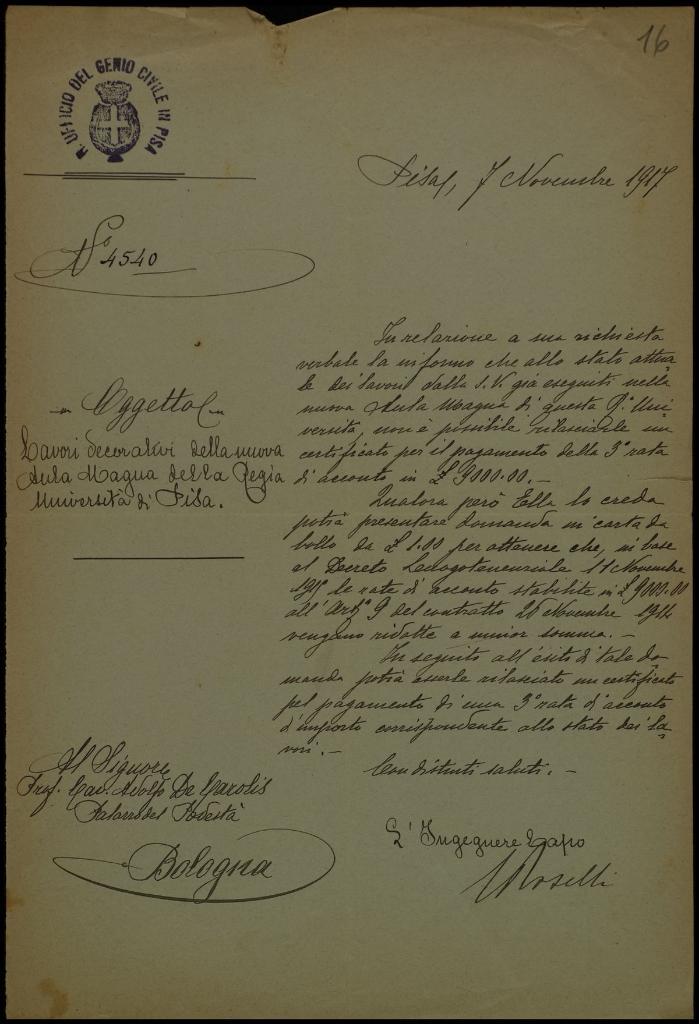 16
R. UFFICIO DEL GENIO CIVILE IN PISA
Pisa, 7 Novembre 1917
N° 4540
Oggetto
Lavori decorativi della nuova
Aula Magna della Regia
Università di Pisa.
In relazione a sua richiesta
verbale la informo che allo stato attua
le dei lavori dalla S.V. già eseguiti nella
nuova Aula Magna di questa R.a Uni
versità, non è possibile rilasciarle un
certificato per il pagamento della 3a rata
di acconto in £ 9000.00.—
Qualora però Ella lo creda
potrà presentare domanda in carta da
bollo da £ 1.00 per ottenere che, in base
al Decreto Luogotenenziale 11 Novembre
le rate di acconto stabilite in £ 9000.00
all'Art° 9 del contratto 26 Novembre
vengano ridotte a minor somma.—
In seguito all'esito di tale do
manda potrà esserle rilasciato un certificato
pel pagamento di una 3a rata di acconto
d'importo corrispondente allo stato dei la
vori.—
Con distinti saluti.—
Al Signore
Prof. Cav. Adolfo De Carolis
Palazzo del Podestà
Bologna
L'Ingegnere Capo